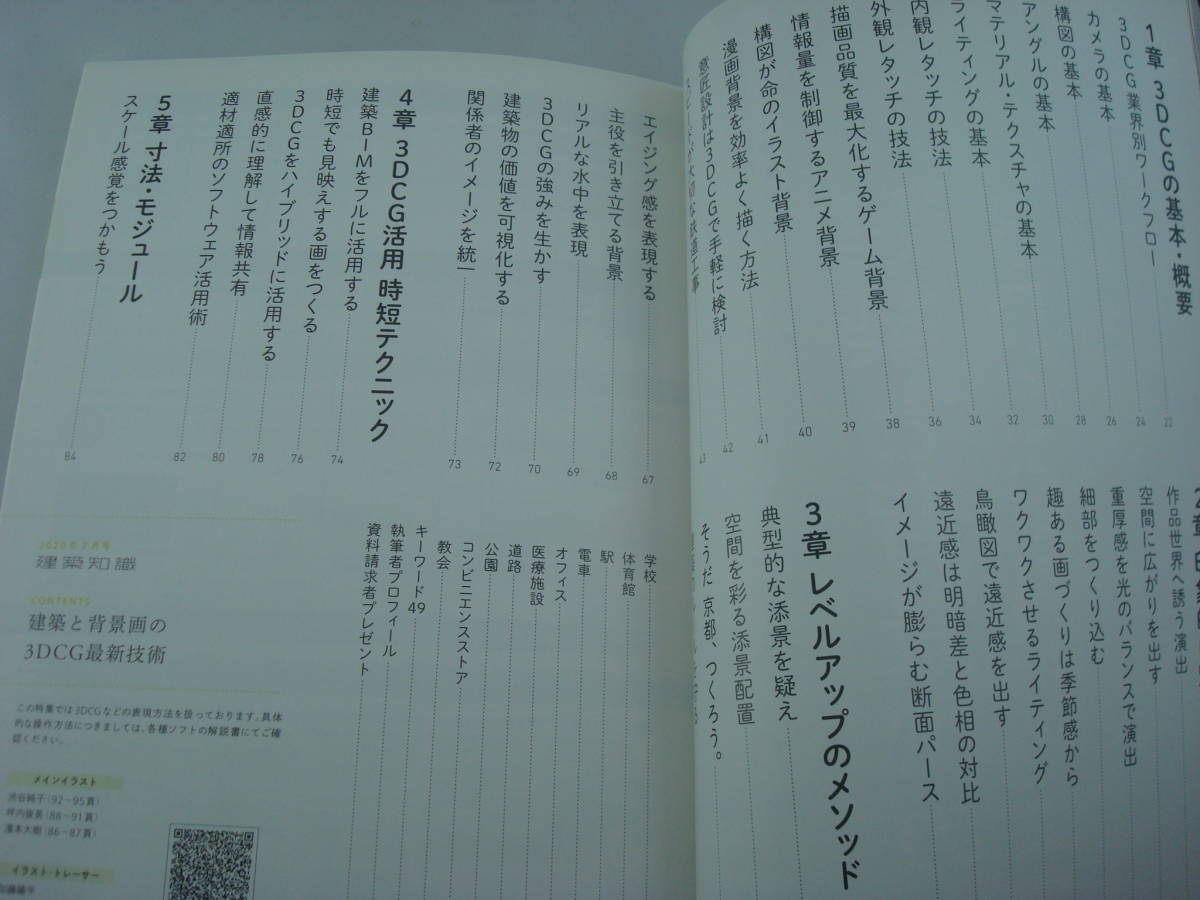 1章 3DCGの基本・概要
3DCG業界別ワークフロー 22
カメラの基本 24
構図の基本 26
アングルの基本 28
マテリアル・テクスチャの基本 30
ライティングの基本 32
内観レタッチの技法 34
外観レタッチの技法 36
描画品質を最大化するゲーム背景 38
情報量を制御するアニメ背景 39
構図が命のイラスト背景 40
漫画背景を効率よく描く方法 41
意匠設計は3DCGで手軽に検討 42
43
作品世界へ誘う演出
空間に広がりを出す
重厚感を光のバランスで演出
細部をつくり込む
趣ある画づくりは季節感から
ワクワクさせるライティング
鳥瞰図で遠近感を出す
遠近感は明暗差と色相の対比
イメージが膨らむ断面パース
3章 レベルアップのメソッド
典型的な添景を疑え
空間を彩る添景配置
そうだ 京都、つくろう。
エイジング感を表現する 67
主役を引き立てる背景 68
リアルな水中を表現 69
3DCGの強みを生かす 70
建築物の価値を可視化する 72
関係者のイメージを統一 73
4章 3DCG活用 時短テクニック
建築BIMをフルに活用する 74
時短でも見映えする画をつくる 76
3DCGをハイブリッドに活用する 78
直感的に理解して情報共有 80
適材適所のソフトウェア活用術 82
5章 寸法・モジュール
スケール感覚をつかもう 84
学校
体育館
駅
電車
オフィス
医療施設
道路
公園
コンビニエンスストア
教会
キーワード49
執筆者プロフィール
資料請求者プレゼント
2020年7月号
建築知識
CONTENTS
建築と背景画の
3DCG最新技術
この特集では3DCGなどの表現方法を扱っております。具体
的な操作方法につきましては、各種ソフトの解説書にてご確
認ください。
メインイラスト
渋谷純子(92〜95頁)
坪内俊英(88〜91頁)
濱本大樹(86〜87頁)
イラスト・トレーサー